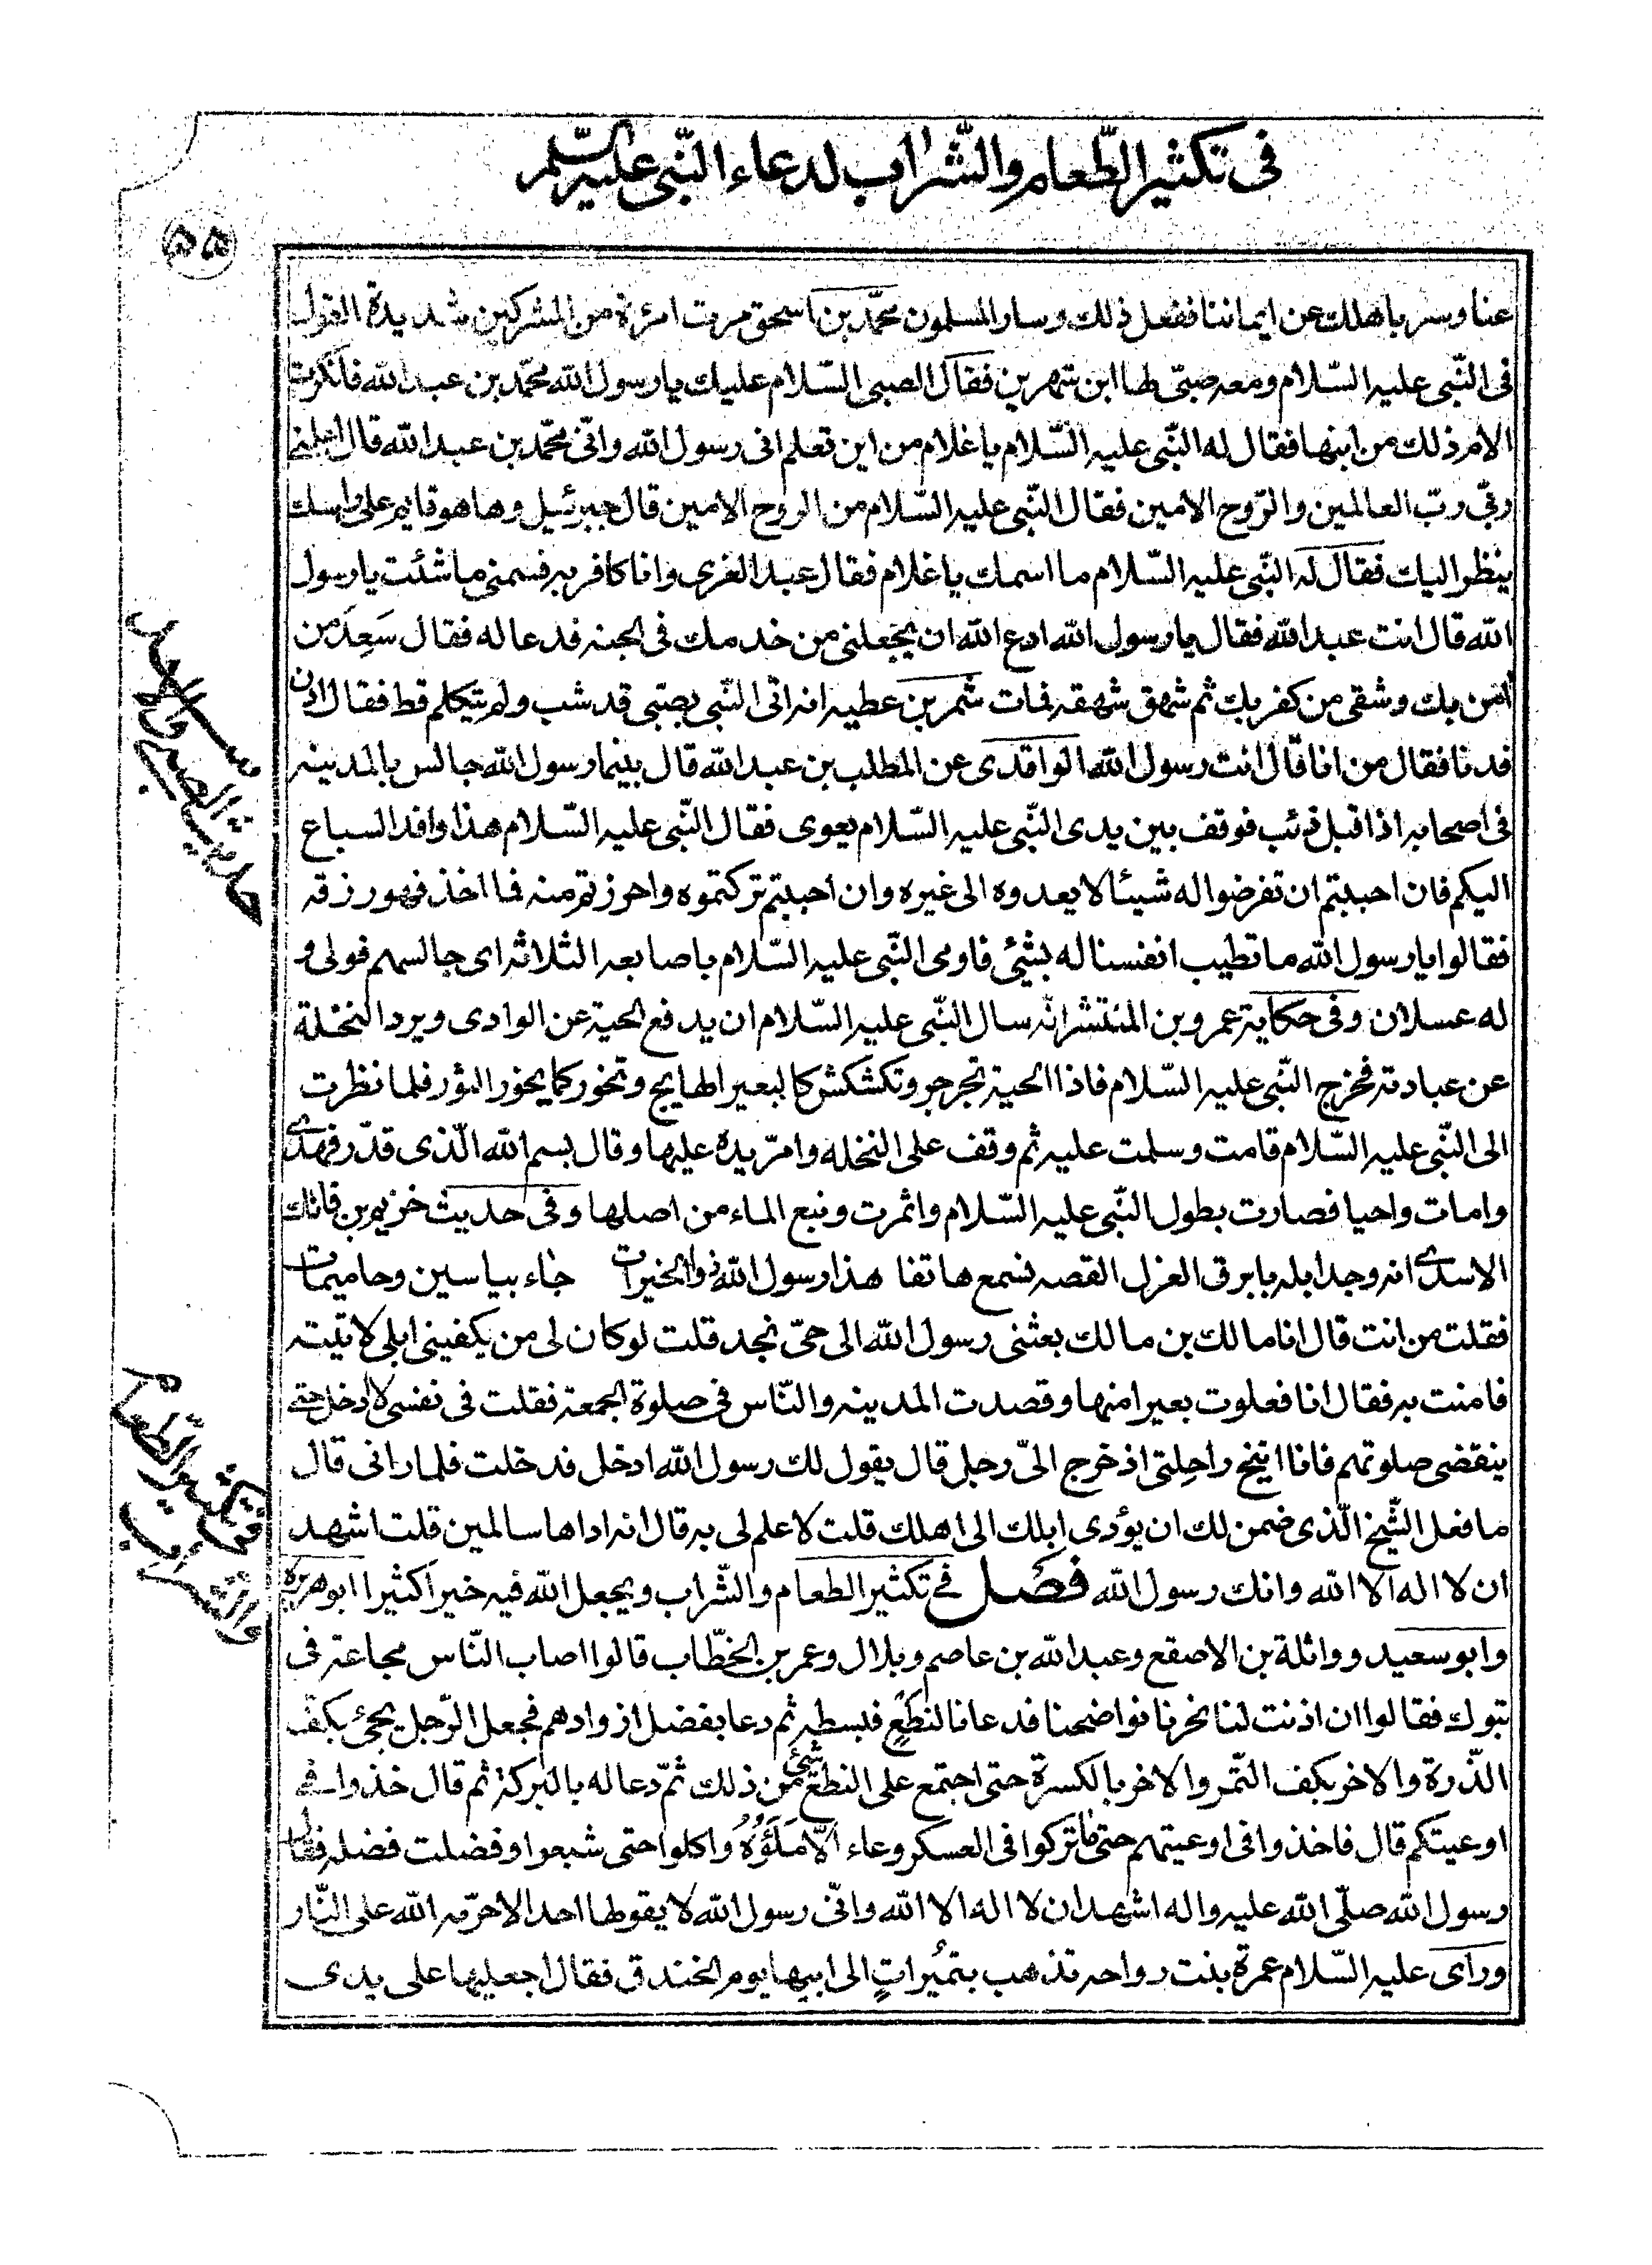 في تكثير الطّعام والشّراب لدعاء النّبي عليه السّلم
٥٥
عنا وسر باهلك عن ايماننا ففعل ذلك وسار المسلمون محمّد بن اسحق مرت امرئة من المشركين شديدة القول
فى النّبى عليه السّلام ومعه صبىّ لها ابن شهرين فقال الصبى السّلام عليك يا رسول الله محمّد بن عبد الله فانكرت
الام ذلك من ابنها فقال له النّبى عليه السّلام يا غلام من اين تعلم انى رسول الله وانّى محمّد بن عبد الله قال اعلمنى
ربّى ربّ العالمين والرّوح الامين فقال النّبى عليه السّلام من الروح الامين قال جبرئيل وها هو قايم على راسك
ينظر اليك فقال له النّبى عليه السّلام ما اسمك يا غلام فقال عبد العزى وانا كافر به فسمنى ما شئت يا رسول
الله قال انت عبد الله فقال يا رسول الله ادع الله ان يجعلنى من خدمك فى الجنه فدعا له فقال سَعِدَ من
امن بك وشقى من كفر بك ثم شهق شهقه فمات شمر بن عطيه انه اتى النّبى بصبّى قد شب ولم يتكلم قط فقال ادن
فدنا فقال من انا قال انت رسول الله الواقدى عن المطلب بن عبد الله قال بينما رسول الله جالس بالمدينه
فى اصحابه اذ اقبل ذئب فوقف بين يدى النّبى عليه السّلام يعوى فقال النّبى عليه السّلام هذا وافد السباع
اليكم فان احببتم ان تفرضوا له شيئا لا يعدوه الى غيره وان احببتم تركتموه واحرزتم منه فما اخذ فهو رزقه
فقالوا يا رسول الله ما تطيب انفسنا له بشئى فاومى النّبى عليه السّلام باصابعه الثلاثه اى جالسهم فولى و
له عسلان وفى حكاية عمرو بن المنتشر انّه سال النّبى عليه السّلام ان يدفع الحية عن الوادى ويرد النخلة
عن عبادته فخرج النّبى عليه السّلام فاذا الحية تجرجر وتكشكش كالبعير الهايج وتخور كما يخور الثور فلما نظرت
الى النّبى عليه السّلام قامت وسلمت عليه ثم وقف على النخله وامرّ يده عليها وقال بسم الله الّذى قدّر فهدى
وامات واحيا فصارت بطول النّبى عليه السّلام واثمرت ونبع الماء من اصلها وفى حديث خزيم بن فاتك
الاسدى انه وجد ابله بابرق العزل القصه فسمع هاتفا هذا رسول الله ذو الخيرات جاء بياسين وحاميمات
فقلت من انت قال انا مالك بن مالك بعثنى رسول الله الى حىّ نجد قلت لو كان لى من يكفينى ابلى لاتيته
فامنت به فقال انا فعلوت بعيرا منها وقصدت المدينه والنّاس فى صلوة الجمعة فقلت فى نفسى لا ادخل حتى
ينقضى صلوتهم فانا انيخ راحلتى اذ خرج الىّ رجل قال يقول لك رسول الله ادخل فدخلت فلما رانى قال
ما فعل الشّيخ الّذى ضمن لك ان يؤدى ابلك الى اهلك قلت لا علم لى به قال انه اداها سالمين قلت اشهد
ان لا اله الا الله وانك رسول الله فصل فى تكثير الطعام والشّراب ويجعل الله فيه خيرا كثيرا ابو هريره
وابو سعيد وواثلة بن الاصقع وعبد الله بن عاصم وبلال وعمر بن الخطّاب قالوا اصاب النّاس مجاعة فى
تبوك فقالوا ان اذنت لنا نحرنا نواضحنا فدعانا لنطع فبسطه ثم دعا بفضل ازوادهم فجعل الرّجل يجئ بكف
الذّرة والاخر بكف التّمر والاخر بالكسرة حتى اجتمع على النطع شئ من ذلك ثمّ دعا له بالبركة ثم قال خذوا فى
اوعيتكم قال فاخذوا فى اوعيتهم حتى ما تركوا فى العسكر وعاء الّا مَلَؤُوهُ واكلوا حتى شبعوا وفضلت فضله فقال
رسول الله صلّى الله عليه واله اشهد ان لا اله الا الله وانّى رسول الله لا يقولها احد الا حرّمه الله على النّار
وراى عليه السّلام عمرة بنت رواحه تذهب بتميراتٍ الى ابيها يوم الخندق فقال اجعليها على يدى
فى تكثير الطّعام
والشّراب